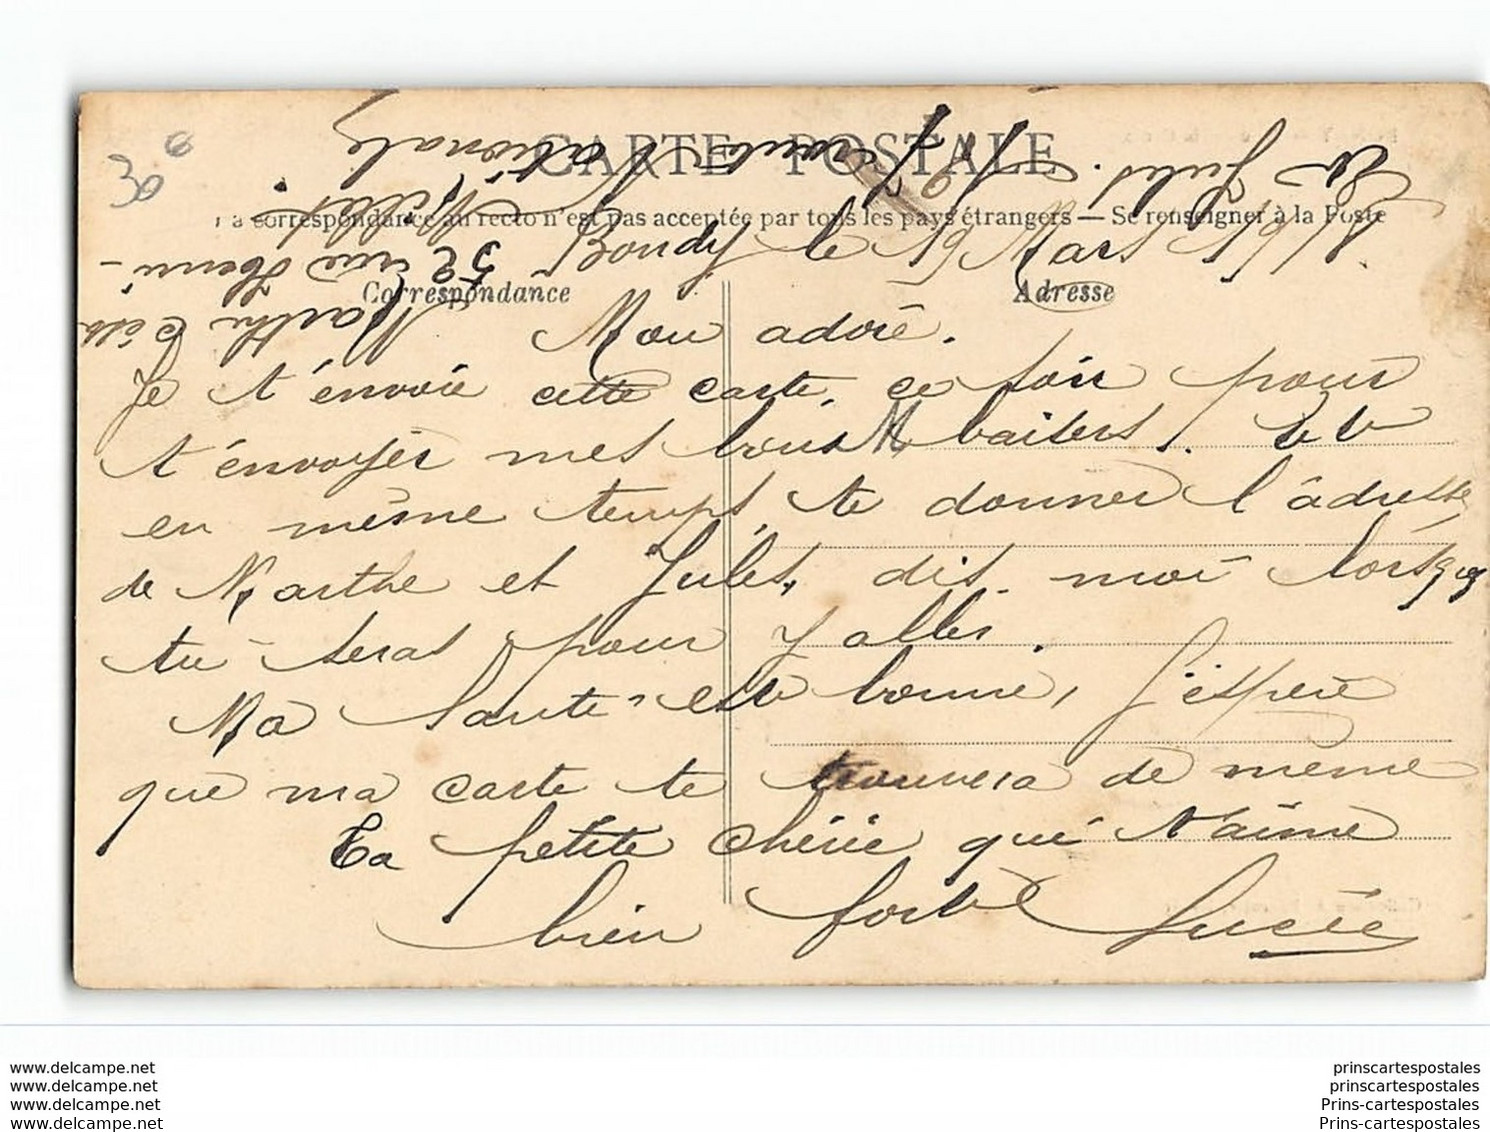 30 e
CARTE POSTALE
La correspondance au recto n'est pas acceptée par tous les pays étrangers — Se renseigner à la Poste
Correspondance
Adresse
Bondy le 19 Mars 1911.
Mon adoré.
Je t'envoie cette carte, ce soir pour
t'envoyer mes bons M baisers. et
en même temps, te donner l'adresse
de Marthe et Jules, dis moi lorsque
tu seras pour y aller.
Ma santé est bonne, J'espère
que ma carte te trouvera de même
Ta petite chérie qui t'aime
bien fort Lucie
Marthe
52 rue Henri
Jules.
Nationale
www.delcampe.net
www.delcampe.net
www.delcampe.net
www.delcampe.net
prinscartespostales
prinscartespostales
Prins-cartespostales
Prins-cartespostales